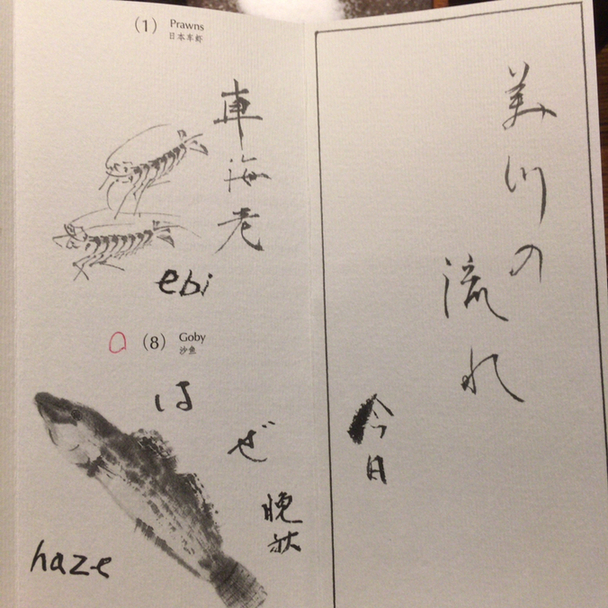 (1) Prawns
日本车虾
車海老
ebi
(8) Goby
沙鱼
はぜ
晩秋
haze
美川の
流れ
今日